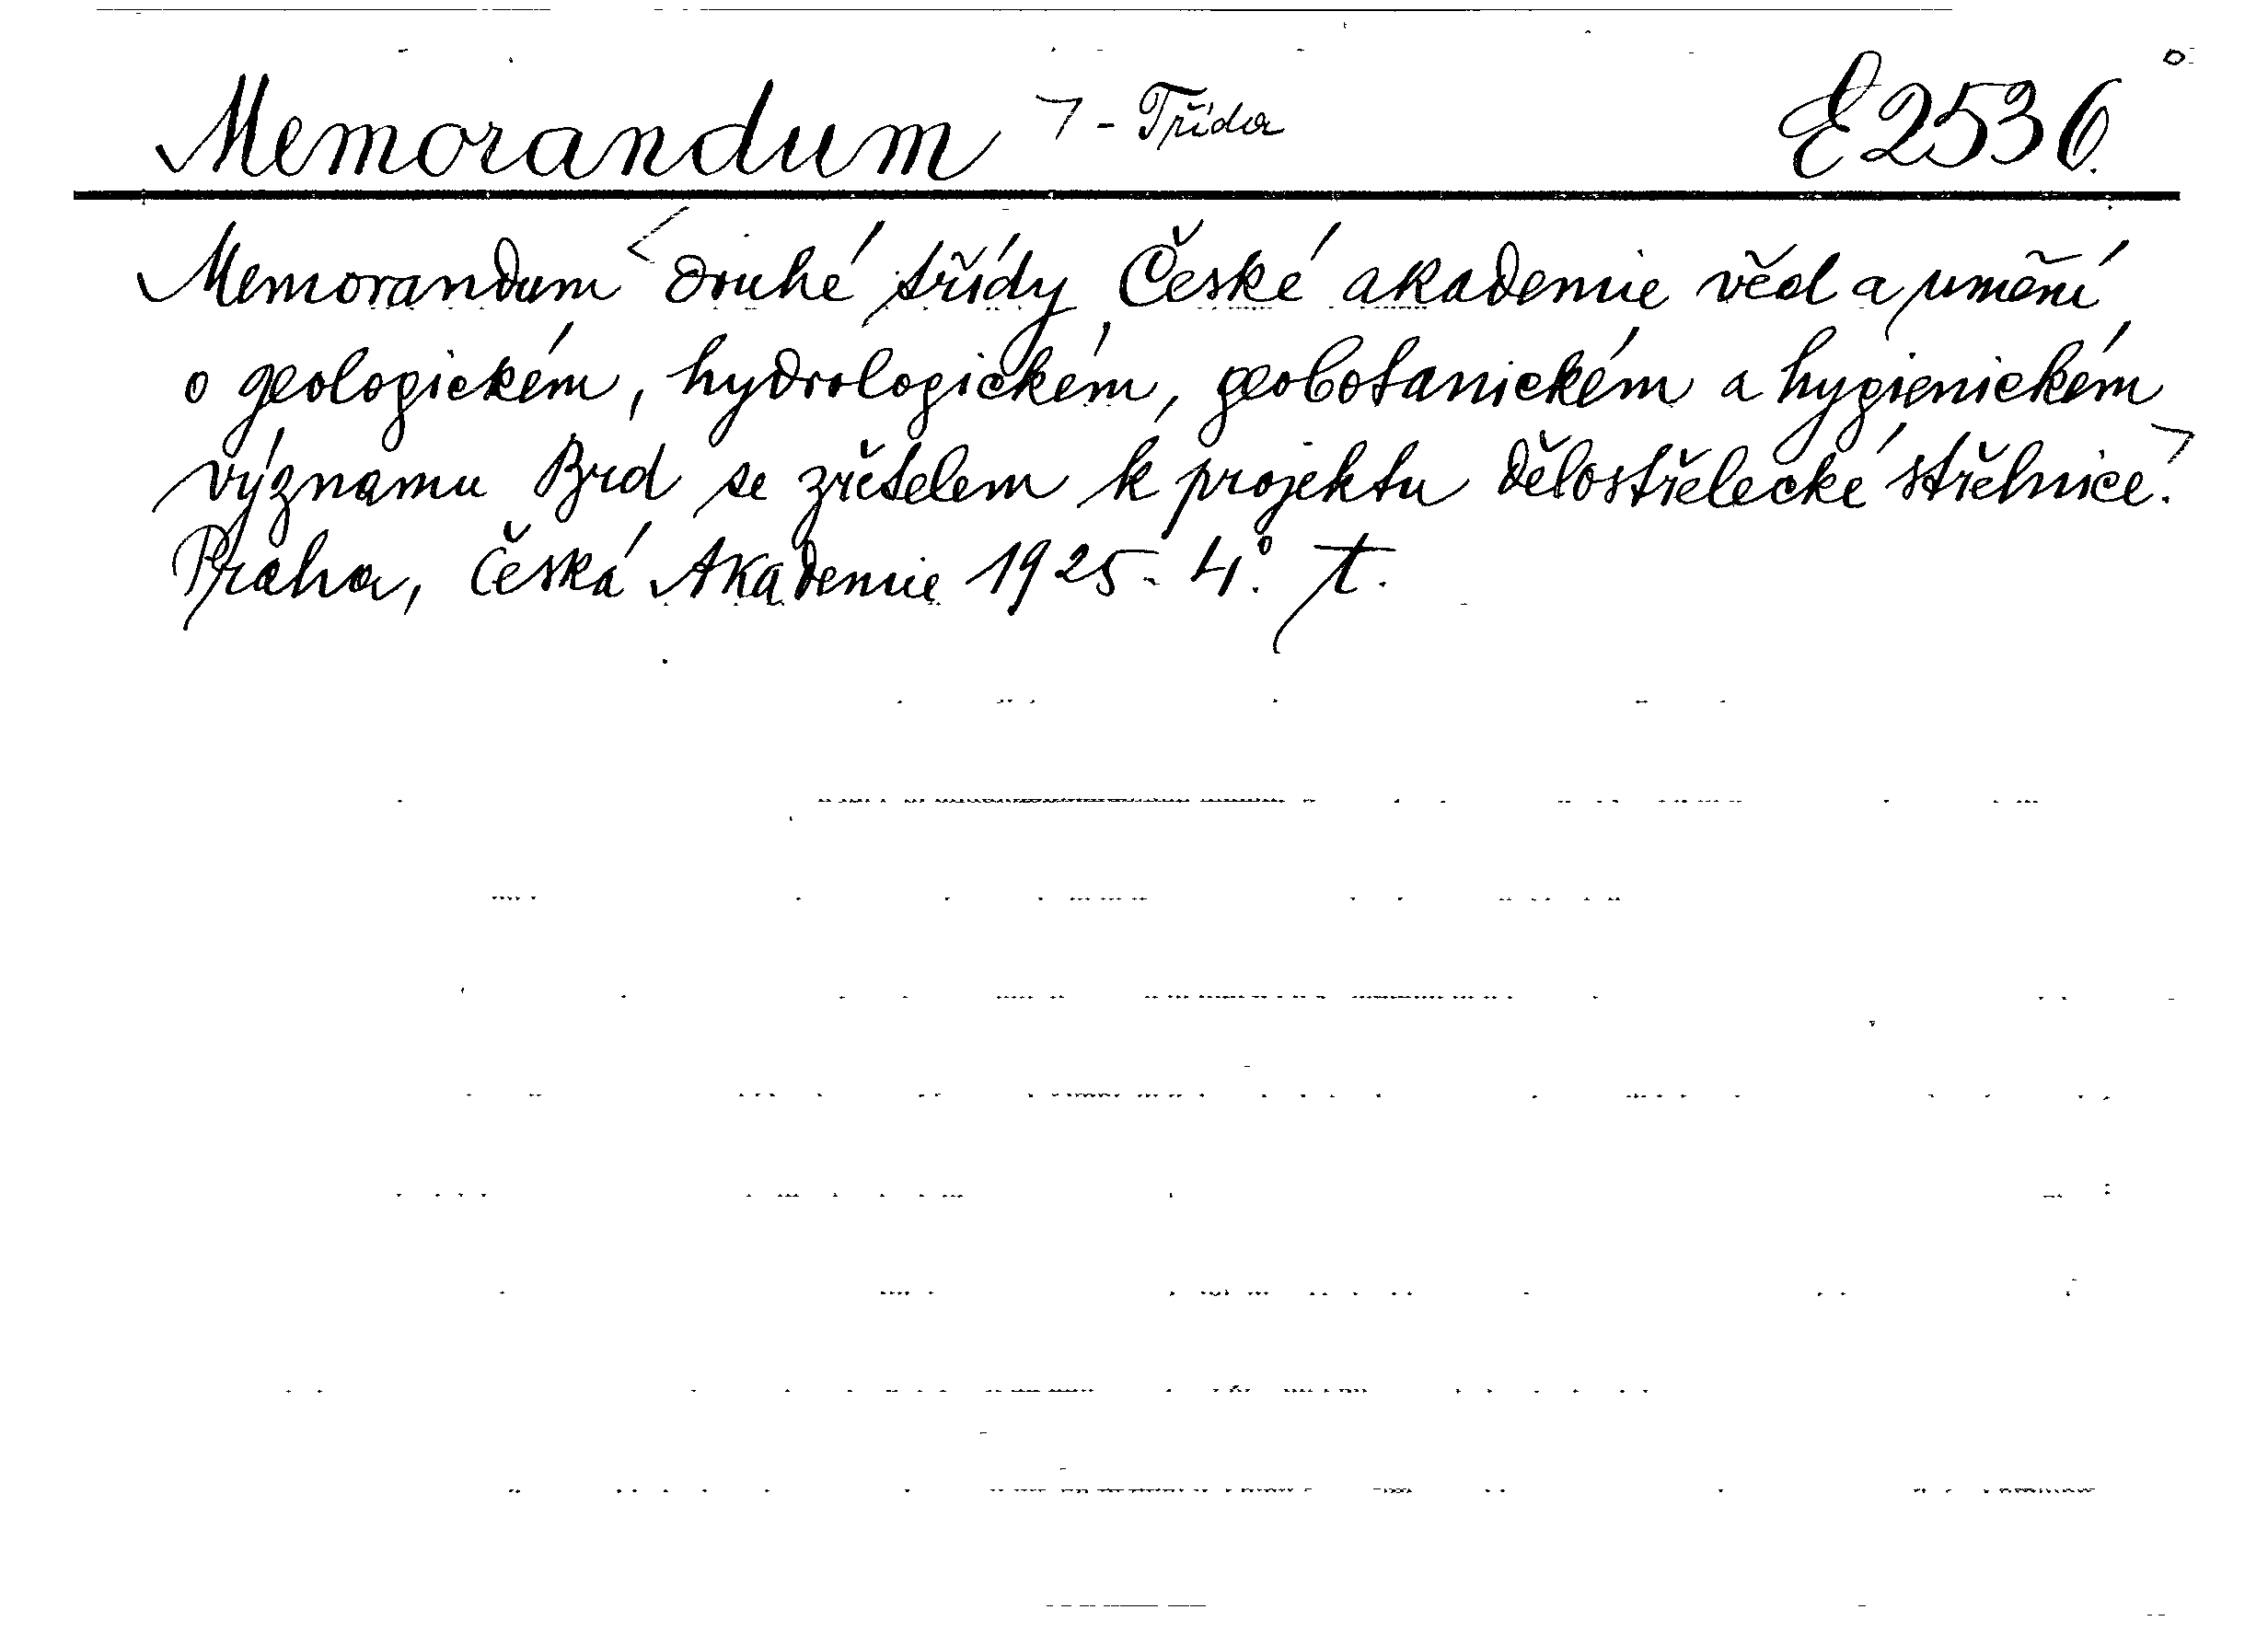 Memorandum ⁊ - Třída E 2536.
Memorandum < druhé třídy České akademie věd a umění
o geologickém, hydrologickém, geobotanickém a hygienickém
významu Brd se zřetelem k projektu dělostřelecké střelnice.
Praha, Česká Akademie 1925. 4°. t.